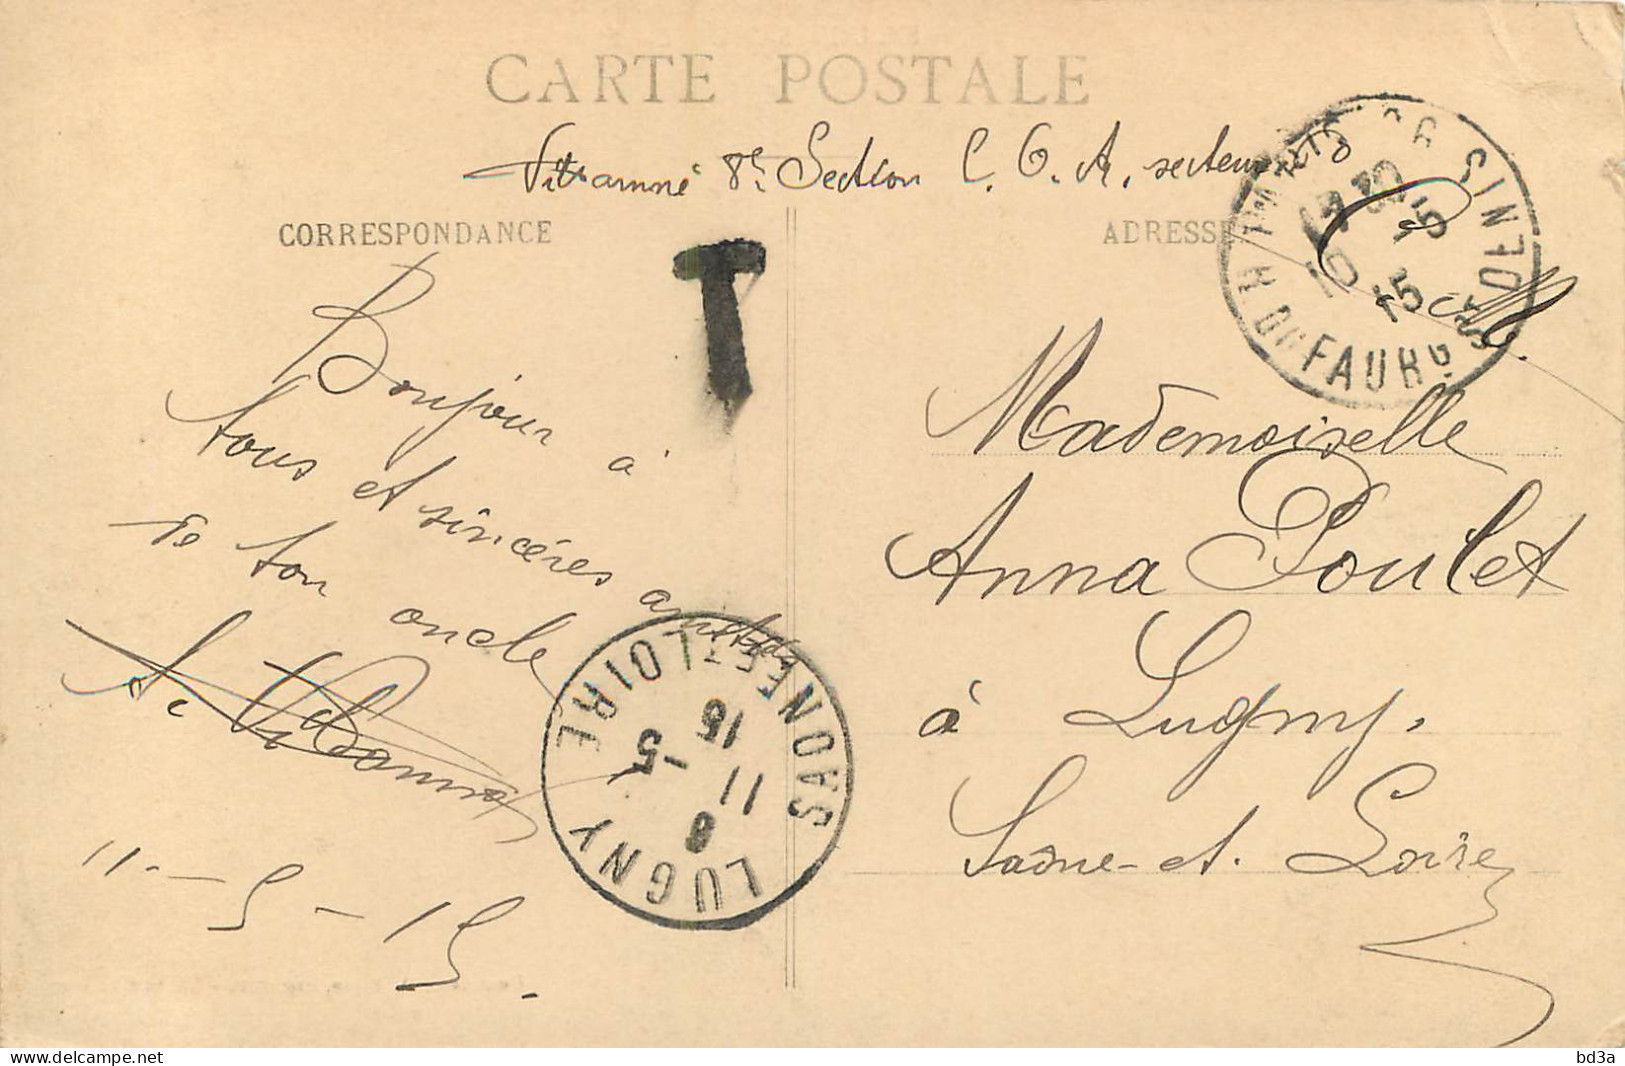 CARTE POSTALE
8e Section C. O. A. secteur
CORRESPONDANCE
ADRESSE
T
Bonjour à
tous et sincères amitiés
de ton oncle
11-5-15.
M.
Mademoiselle
Anna Poulet
à Lugny.
Saône-et-Loire
R. DU FAUBG ST DENIS
10 5
15
LUGNY
SAONE-ET-LOIRE
8
11 -5
15
delcampe.net
bd3a